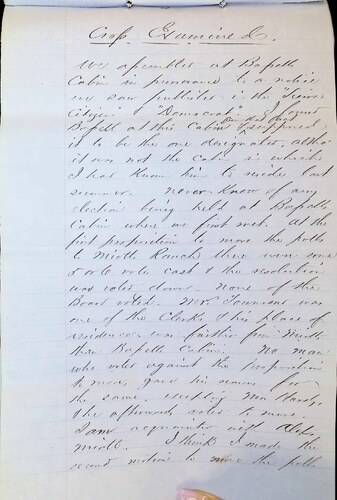 Cross Examined.
We assembled at Bassett
Cabin in pursuance to a notice
we saw published in the "Seneca
Citizen" "Democrat" I found
on day aft
Bassett at this Cabin & supposed
it to be the one designated, altho
it was not the cabin in which
I had known him to reside last
summer. never knew of any
election being held at Bassetts
Cabin where we first met. At the
first proposition to move the polls
to Mioth Ranch there were some
5 or 6 votes cast & the resolution
was voted down. none of the
Board voted. Mr. Townsend was
one of the Clerks & his place of
residence was further from
than Bassetts Cabin. No man
who voted against the proposition
to move, gave his name for
the same. excepting Mr
& he afterwards voted to move.
I am acquainted with
I think I made the
second motion to move the polls